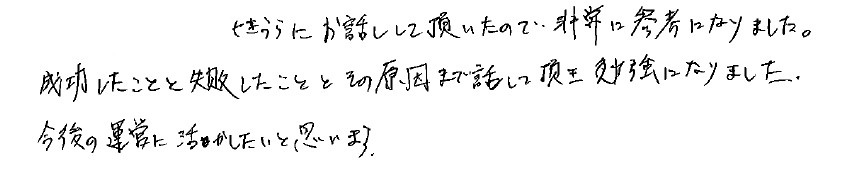 せきららにお話しして頂いたので、非常に参考になりました。
成功したことと失敗したこととその原因まで話して頂き勉強になりました。
今後の運営に活かしたいと思います。